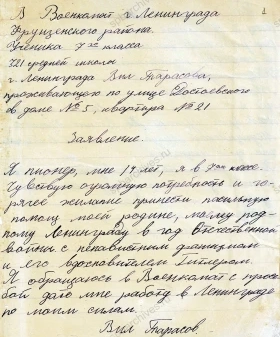 1
В Военкомат г. Ленинграда
Фрунзенского района.
Ученика 7ого класса
321 средней школы
г. Ленинграда Вил Тарасова,
проживающего по улице Достоевского
в доме №5, квартира №21
Заявление.
Я пионер, мне 14 лет, я в 7ом классе.
Чувствую огромную потребность и го-
рячее желание принести посильную
помощь моей родине, моему род-
ному Ленинграду в год Отечественной
войны с ненавистным фашизмом
и его вдохновителем Гитлером.
Я обращаюсь в Военкомат с прось-
бой дать мне работу в Ленинграде
по моим силам.
Вил Тарасов.